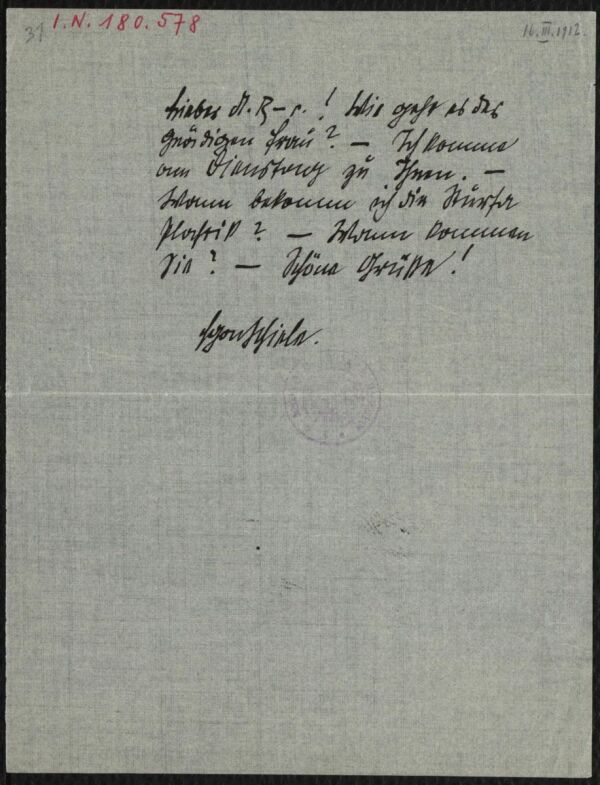 31 I.N. 180.578
16.III.1912.
Lieber A. R–r.! Wie geht es der
gnädigen Frau? – Ich komme
am Dienstag zu Ihnen. –
Wann bekomm ich die
Plastik? – Wann kommen
Sie? – Schöne Grüße!
Egon Schiele.